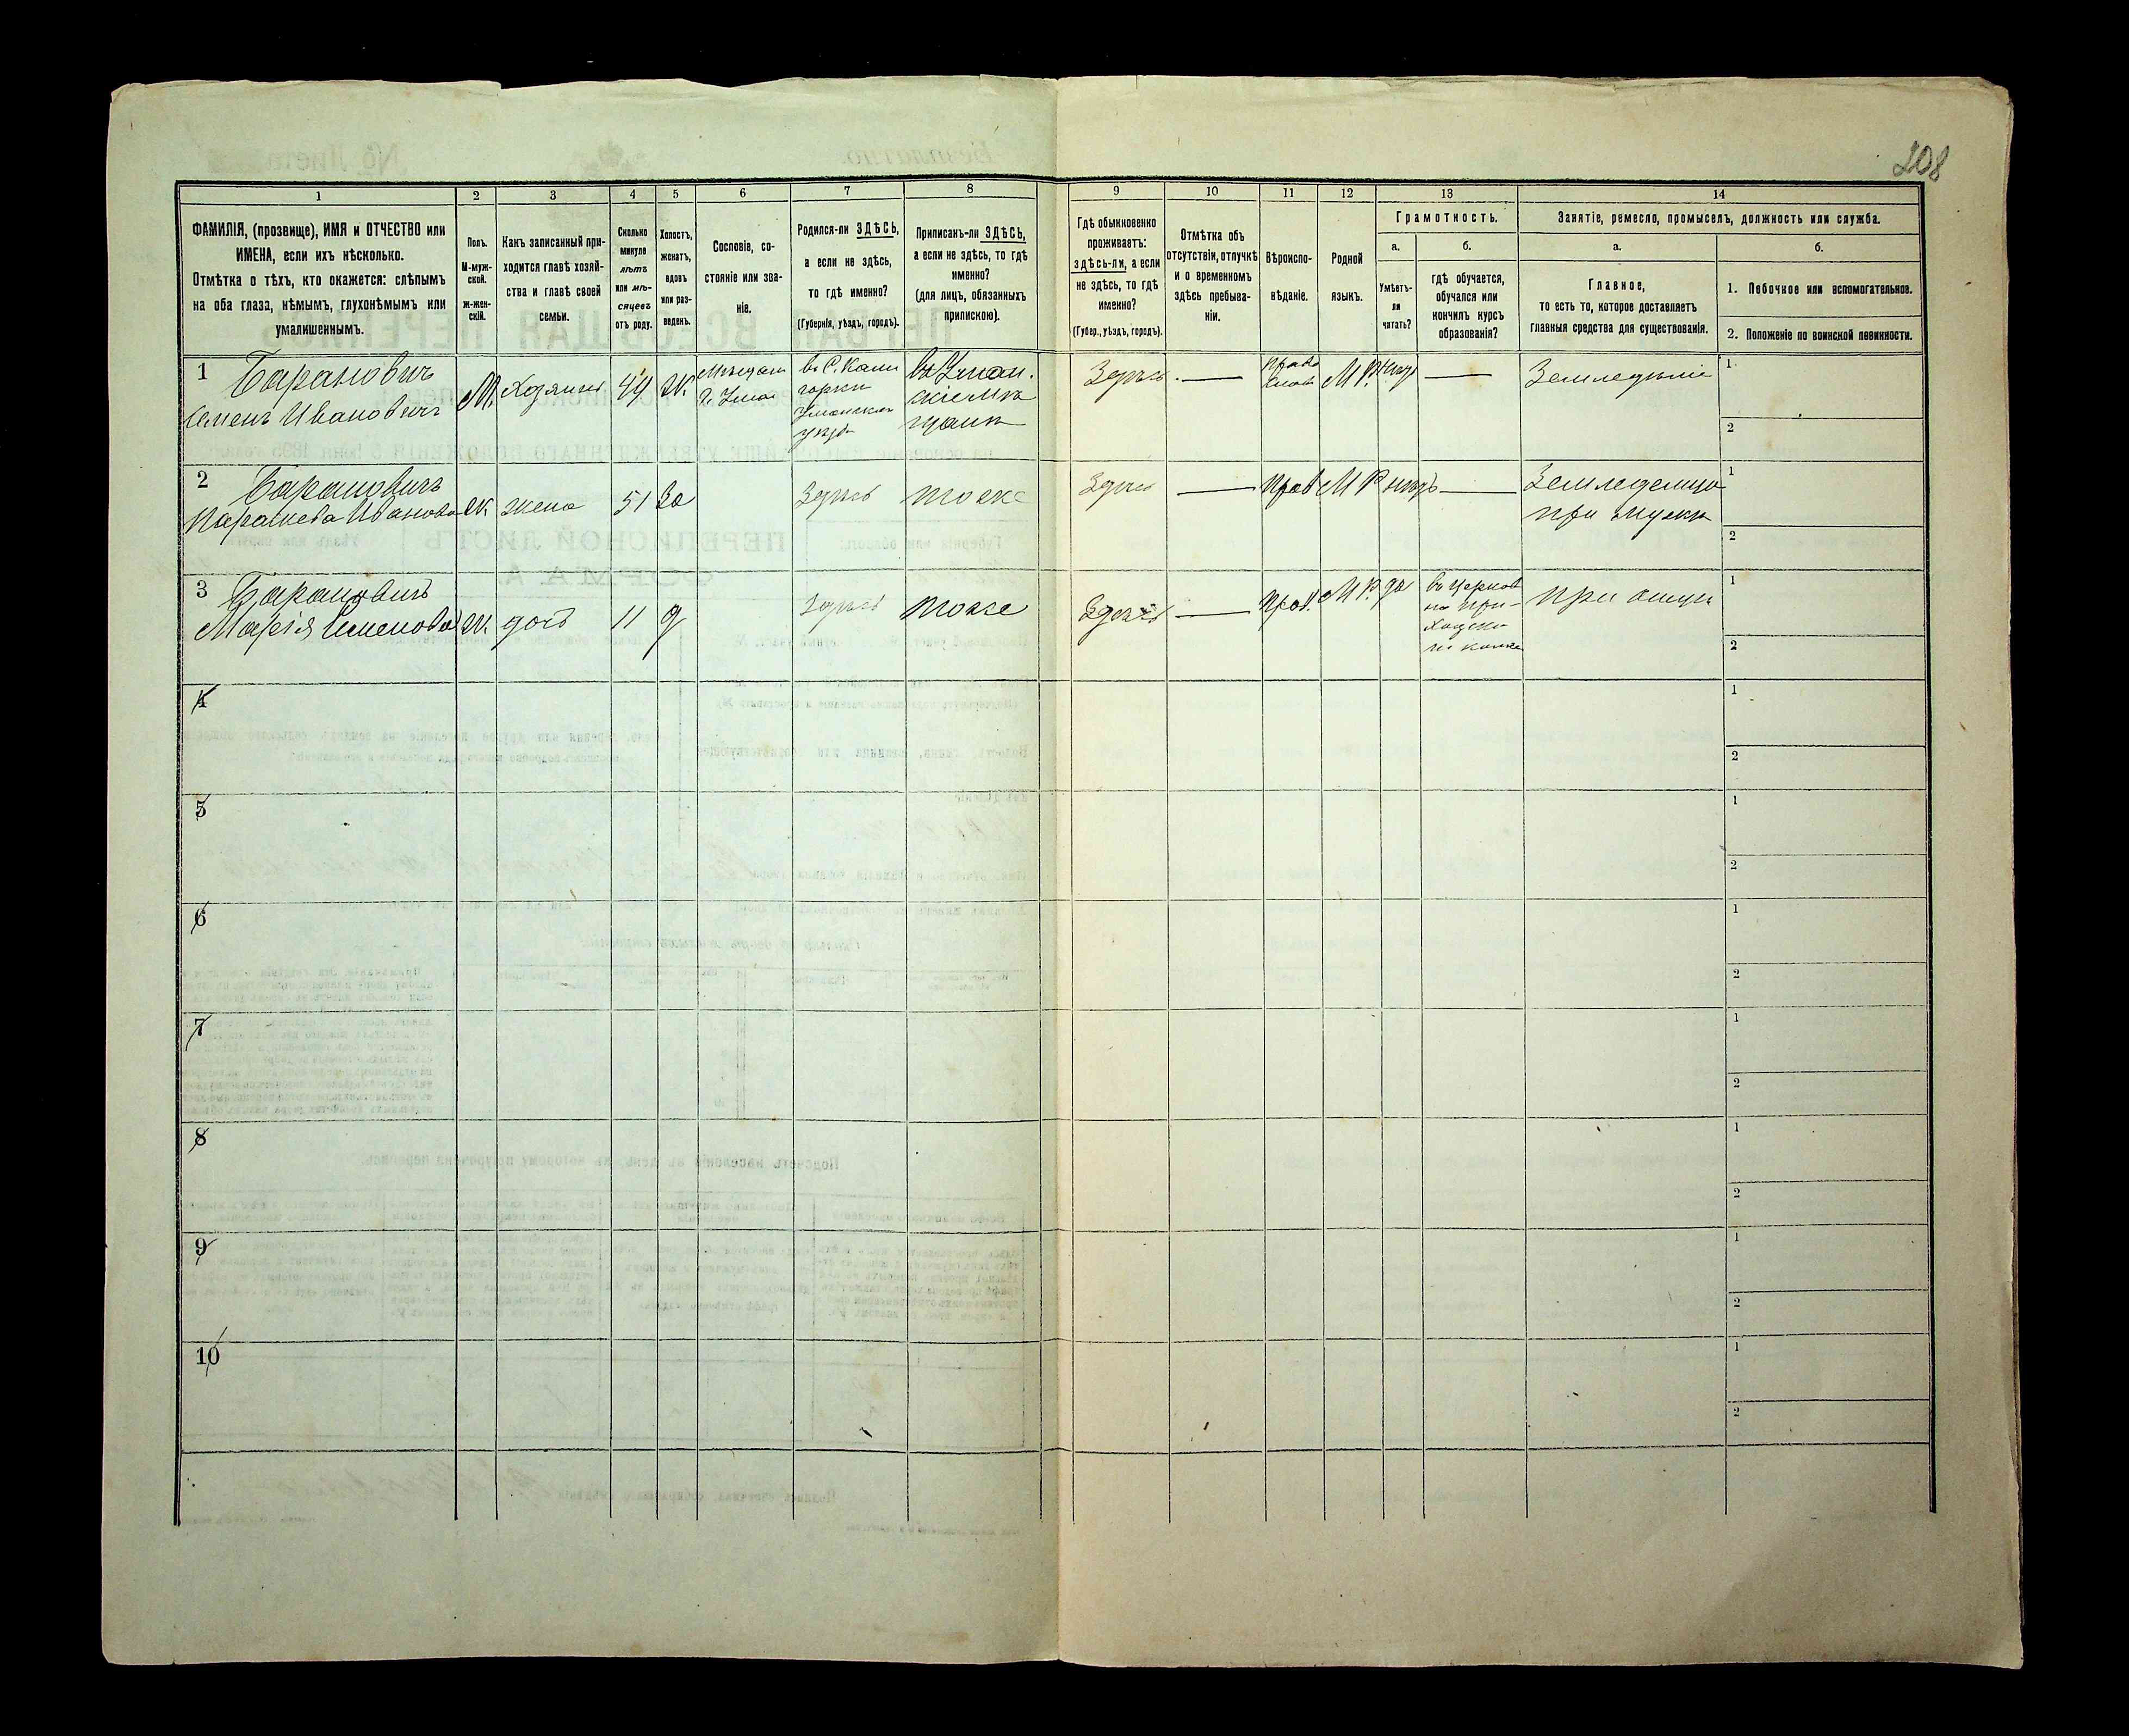 208
1
2
3
4
5
6
7
8
9
10
11
12
13
14
ФАМИЛІЯ, (прозвище), ИМЯ и ОТЧЕСТВО или
ИМЕНА, если ихъ нѣсколько.
Отмѣтка о тѣхъ, кто окажется: слѣпымъ
на оба глаза, нѣмымъ, глухонѣмымъ или
умалишеннымъ.
Полъ.
М-муж-
ской.
ж-жен-
скій.
Какъ записанный при-
ходится главѣ хозяй-
ства и главѣ своей
семьи.
Сколько
минуло
лѣтъ
или мѣ-
сяцевъ
отъ роду.
Холостъ,
женатъ,
вдовъ
или раз-
веденъ.
Сословіе, со-
стояніе или зва-
ніе.
Родился-ли ЗДѢСЬ,
а если не здѣсь,
то гдѣ именно?
(Губернія, уѣздъ, городъ).
Приписанъ-ли ЗДѢСЬ,
а если не здѣсь, то гдѣ
именно?
(для лицъ, обязанныхъ
припискою).
Гдѣ обыкновенно
проживаетъ:
здѣсь-ли, а если
не здѣсь, то гдѣ
именно?
(Губер., уѣздъ, городъ).
Отмѣтка объ
отсутствіи, отлучкѣ
и о временномъ
здѣсь пребыва-
ніи.
Вѣроиспо-
вѣданіе.
Родной
языкъ.
Грамотность.
а.
Умѣетъ-
ли
читать?
б.
гдѣ обучается,
обучался или
кончилъ курсъ
образованія?
Занятіе, ремесло, промыселъ, должность или служба.
а.
Главное,
то есть то, которое доставляетъ
главныя средства для существованія.
б.
1. Побочное или вспомогательное.
2. Положеніе по воинской повинности.
1
Барановичъ
Семенъ Ивановичъ
М.
Хозяинъ
44
Ж.
в С.
Уманскаго
Здѣсь
М Р.
Земледѣліе
1
2
2
Барановичъ
Параскева Иванова
Ж.
жена
51
За
Здѣсь
тоже
Здѣсь
Прав
М Р
Земледелица
при мужѣ
1
2
3
Барановичъ
Марія Семенова
Ж.
дочь
11
д
Здѣсь
тоже
Здѣсь
Прав.
М Р.
да
въ Церков
но При-
ходско
при отцѣ
1
2
4
1
2
5
1
2
6
1
2
7
1
2
8
1
2
9
1
2
10
1
2